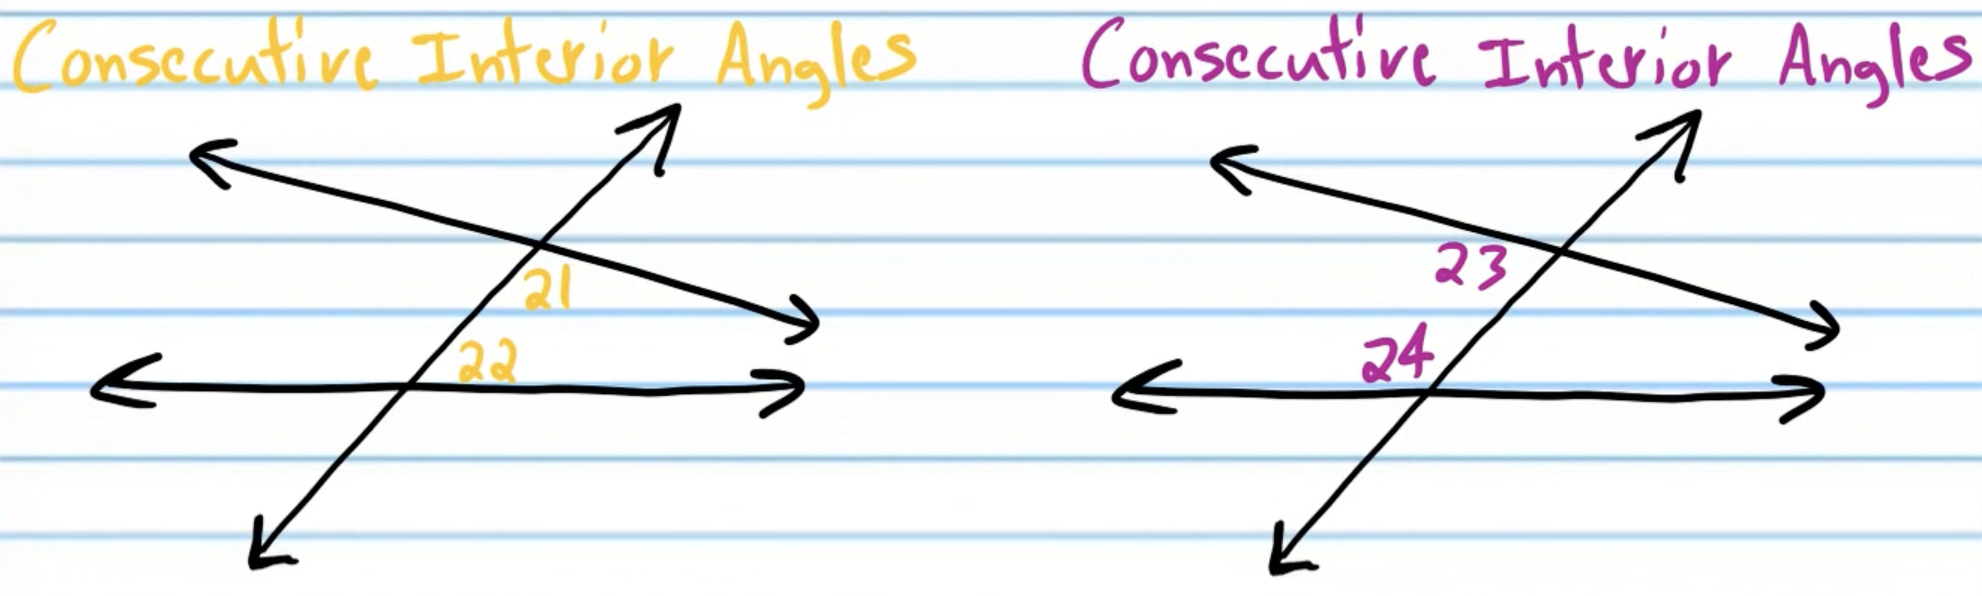 Consecutive Interior Angles
21
22
Consecutive Interior Angles
23
24